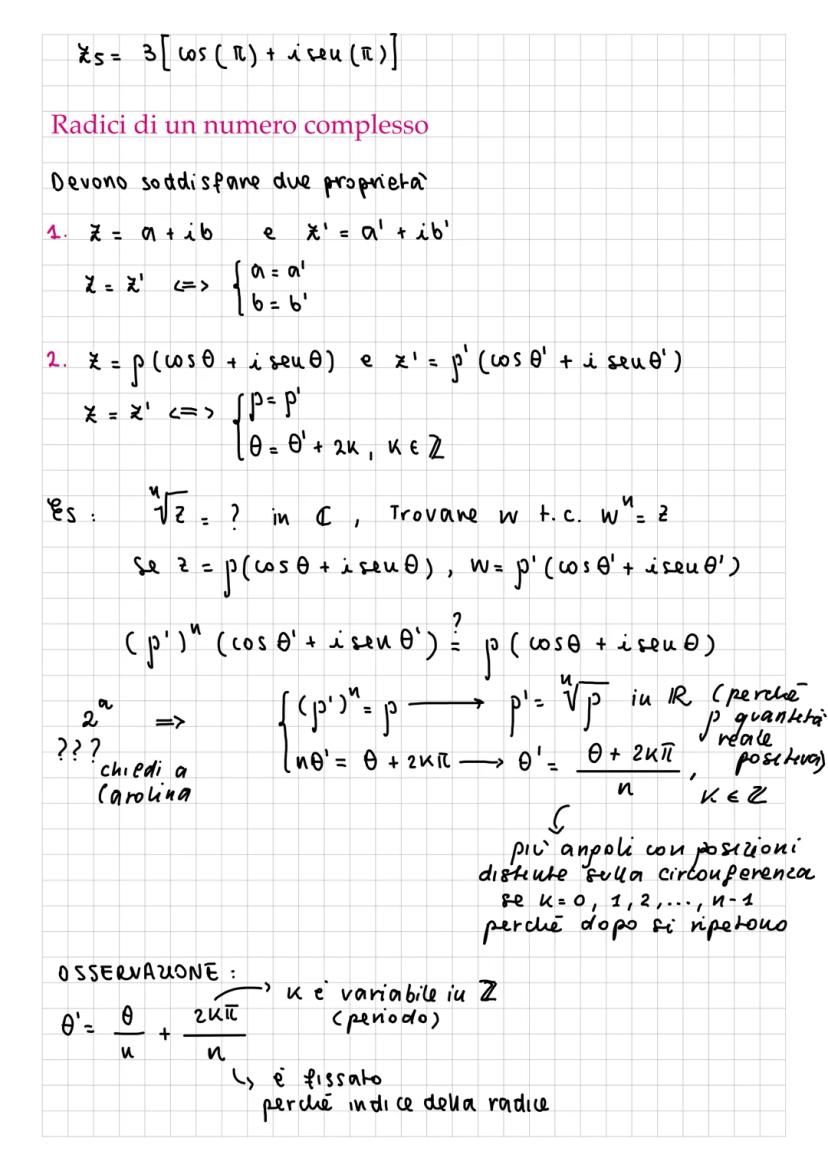 z₅ = 3[cos(π) + i sen(π)]
Radici di un numero complesso
Devono soddisfare due proprietà
1. z = a + ib e z' = a' + ib'
z = z' <=> { a = a'
b = b'
2. z = ρ(cosθ + i senθ) e z' = ρ'(cosθ' + i senθ')
z = z' <=> { ρ = ρ'
θ = θ' + 2k, k ∈ ℤ
Es: ⁿ√z = ? in ℂ, Trovare w t.c. wⁿ = z
se z = ρ(cosθ + i senθ), w = ρ'(cosθ' + i senθ')
(ρ')ⁿ (cosθ' + i senθ') ≟ ρ(cosθ + i senθ)
2ᵃ => { (ρ')ⁿ = ρ → ρ' = ⁿ√ρ in ℝ (perché ρ quantità reale positiva)
??? chiedi a Carolina
nθ' = θ + 2kπ → θ' = (θ + 2kπ)/n, k ∈ ℤ
più angoli con posizioni
distinte sulla circonferenza
se k = 0, 1, 2, ..., n-1
perché dopo si ripetono
OSSERVAZIONE:
θ' = θ/n + 2kπ/n
→ k è variabile in ℤ
(periodo)
↳ è fissato
perché indice della radice